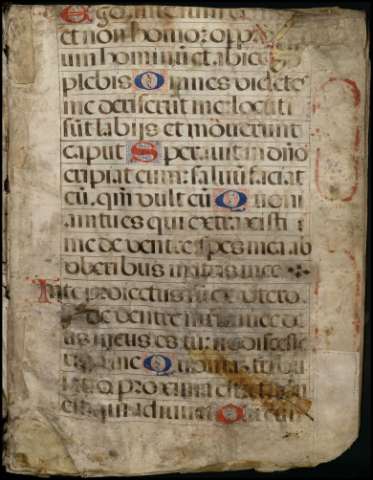 Ego
et non homo: opp
um hominū et abiec
plebis Omnes vidēte
me deriserūt me: locuti
sūt labijs et mōuerunt
caput Sperauit in dño
eripiat eum: saluū faciat
eū. qm̄ vult eū Quoni
am tu es qui extraxisti
me de ventre spes mea ab
vberibus matris mee
In te proiectus sū ex vtero
de ventre matris mee de
us meus es tu: ne discesse
me Quoniam tribu
latio proxima est
est qui adiuuet